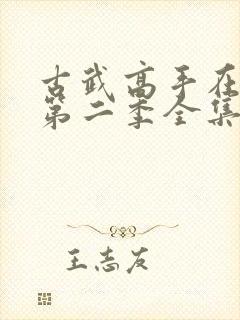 古武高手在
第二季全集
王志友